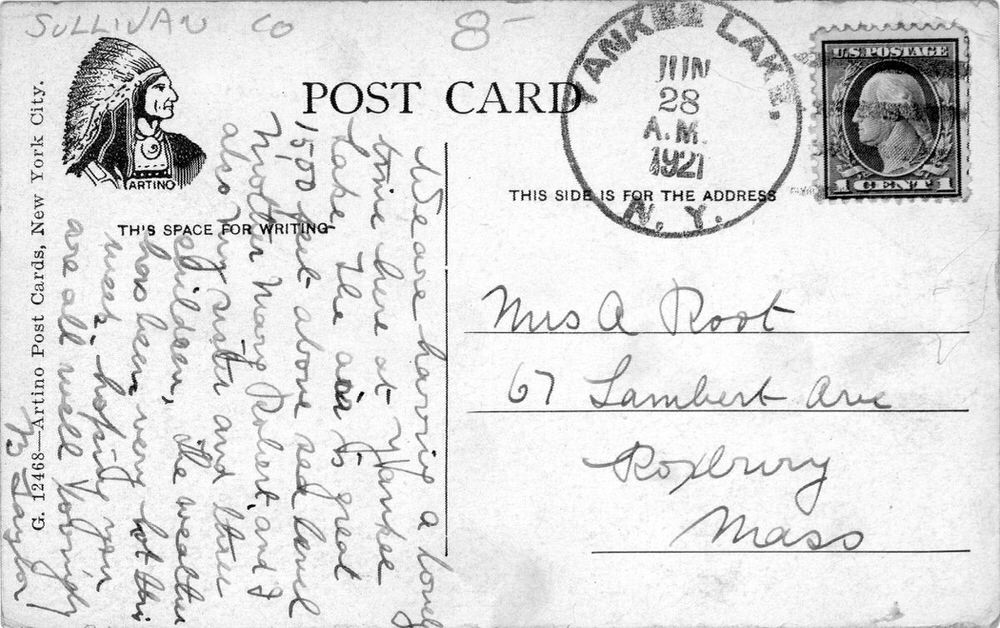 SULLIVAN CO
8-
POST CARD
YANKEE LAKE,
JUN
28
A.M.
1921
N. Y.
U.S. POSTAGE
1 CENT 1
ARTINO
THIS SPACE FOR WRITING
THIS SIDE IS FOR THE ADDRESS
G. 12468—Artino Post Cards, New York City.
We are having a lovely
time here at Yankee
Lake. The air is great
1500 feet above sea level
Mother Mary Robert, and I
also my sister and three
children, the weather
has been very hot this
week, hoping you
are all well Lovingly
Taylor
Mrs A Root
67 Lambert Ave
Roxbury
Mass